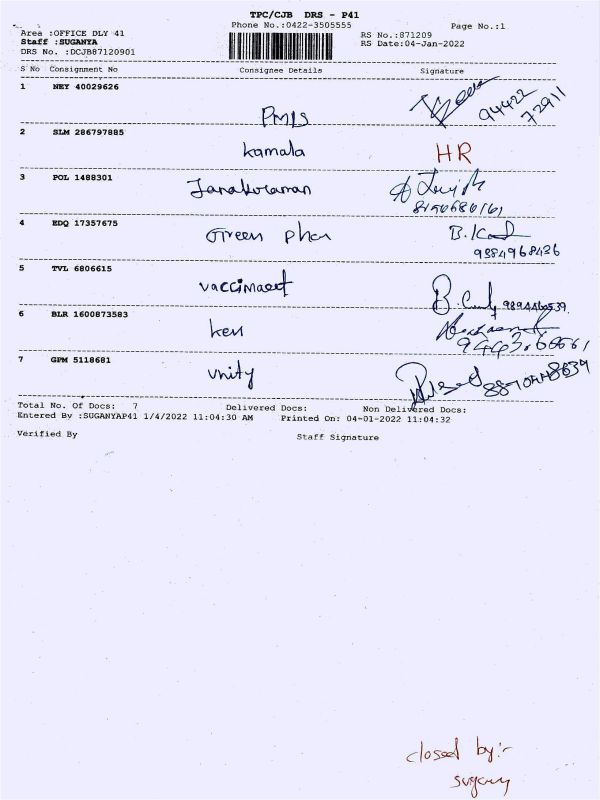 TPC/CJB DRS - P41
Phone No.:0422-3505555 Page No.:1
Area :OFFICE DLY 41 RS No.:871209
Staff :SUGANYA RS Date:04-Jan-2022
DRS No. :DCJB87120901
S No Consignment No Consignee Details Signature
1 NEY 40029626
94422
72911
PMLS
2 SLM 286797885
kamala HR
3 POL 1488301
Janakiraman
4 EDQ 17357675
Green phar B.
9384968436
5 TVL 6806615
vaccimaest
B.
6 BLR 1600873583
ken
7 GPM 5118681
unity
Total No. Of Docs: 7 Delivered Docs: Non Delivered Docs:
Entered By :SUGANYAP41 1/4/2022 11:04:30 AM Printed On: 04-01-2022 11:04:32
Verified By Staff Signature
closed by:-
sugany